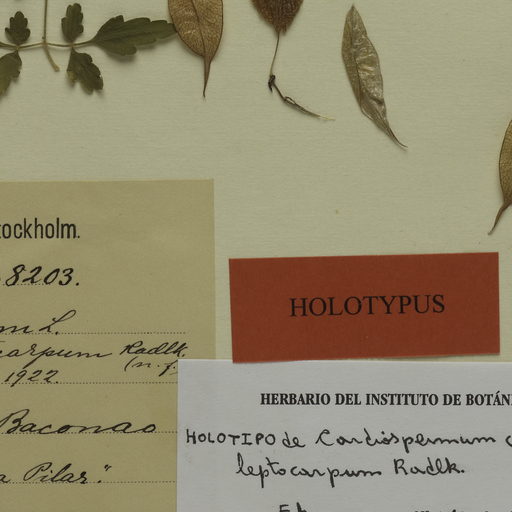 tockholm.
8203.
m L.
carpum Radlk.
(n. f.)
1922.
Baconao
a Pilar".
HOLOTYPUS
HERBARIO DEL INSTITUTO DE BOTÁN
HOLOTIPO de Cardiospermum c
leptocarpum Radlk.